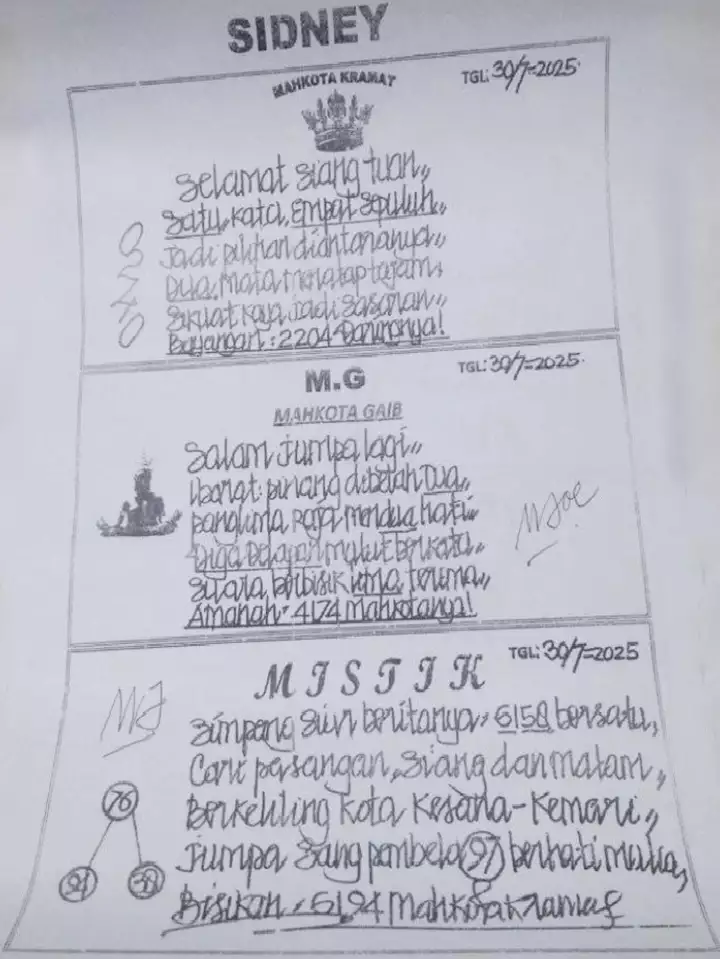 SIDNEY
MAHKOTA KRAMAT
TGL: 30/7=2025
Selamat Siang tuan,,
Satu kata, Empat Sepuluh,,
Jadi pilihan diantaranya,,
Dua mata menatap tajam,
Sikuat Raja jadi Sasaran,,
Bayangan: 2204 Daringnya!
M.G
TGL: 30/7=2025
MAHKOTA GAIB
Salam jumpa lagi,,
Ibarat: pinang dibelah Dua,,
panglima Raja mendua hati,,
Tiga Delapan mulut berkata,,
Suara berbisik lima
Amanah: 4174 Mahkotanya!
TGL: 30/7=2025
MISTIK
MJ
Simpang Siur beritanya, 6158 bersatu,
Cari pasangan, Siang dan malam,,
76
Berkeliling kota Kesana-Kemari,,
Jumpa Sang pembela 97 berhati mulia,
Bisikan: 6194 Mahkota Kramat